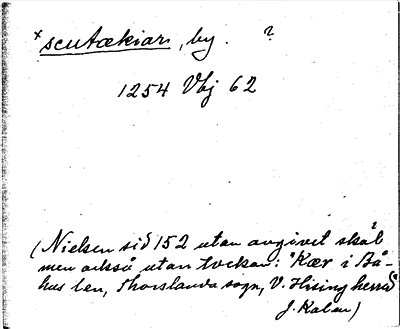 *scutækiar, by. ?
1254 Vbj 62
(Nielsen sid 152 utan angivet skäl
men också utan tvekan: "Kær i Bå-
hus len, Thorslanda sogn, V. Hising herred"
J. Kalén)